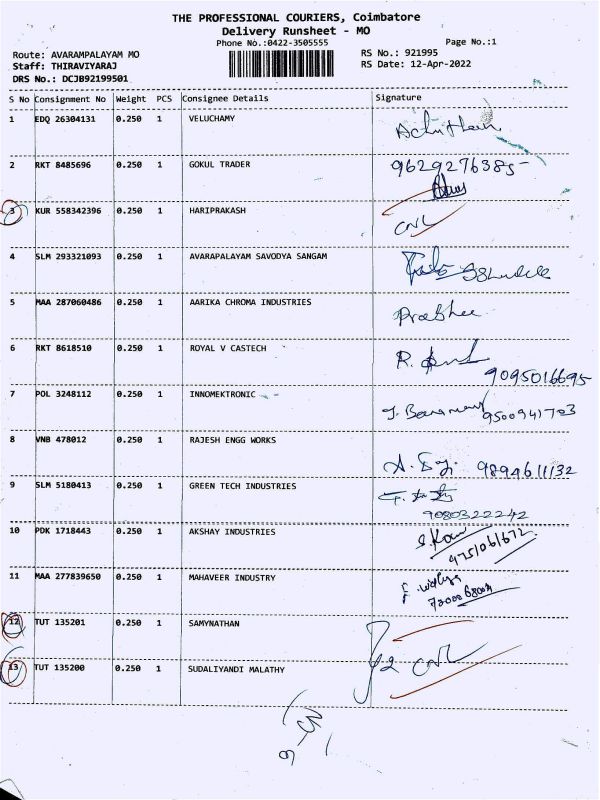 THE PROFESSIONAL COURIERS, Coimbatore
Delivery Runsheet - MO
Phone No.:0422-3505555
Page No.:1
Route: AVARAMPALAYAM MO
RS No.: 921995
Staff: THIRAVIYARAJ
RS Date: 12-Apr-2022
DRS No.: DCJB92199501
S No Consignment No Weight PCS Consignee Details Signature
1 EDQ 26304131 0.250 1 VELUCHAMY
2 RKT 8485696 0.250 1 GOKUL TRADER 9629276385
3 KUR 558342396 0.250 1 HARIPRAKASH
CNL
4 SLM 293321093 0.250 1 AVARAPALAYAM SAVODYA SANGAM
5 MAA 287060486 0.250 1 AARIKA CHROMA INDUSTRIES
6 RKT 8618510 0.250 1 ROYAL V CASTECH
9095016695
7 POL 3248112 0.250 1 INNOMEKTRONIC
9500941703
8 VNB 478012 0.250 1 RAJESH ENGG WORKS
9894611132
9 SLM 5180413 0.250 1 GREEN TECH INDUSTRIES
9080322242
10 PDK 1718443 0.250 1 AKSHAY INDUSTRIES
11 MAA 277839650 0.250 1 MAHAVEER INDUSTRY
12 TUT 135201 0.250 1 SAMYNATHAN
CNL
13 TUT 135200 0.250 1 SUDALIYANDI MALATHY